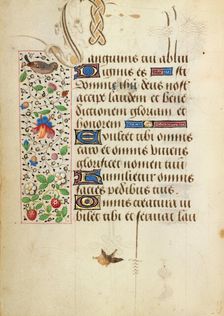 sanguinis tui ablui
Dignus es
Domine ihu deus nost
accipe laudem et bene
dictionem gloriam et
honorem
Consecret tibi omnis
caro et omnis viuens
glorificet nomen tuum
humilietur omnis
facies pedibus tuis
Omnis creatura iu
bilet tibi et seruiat lau